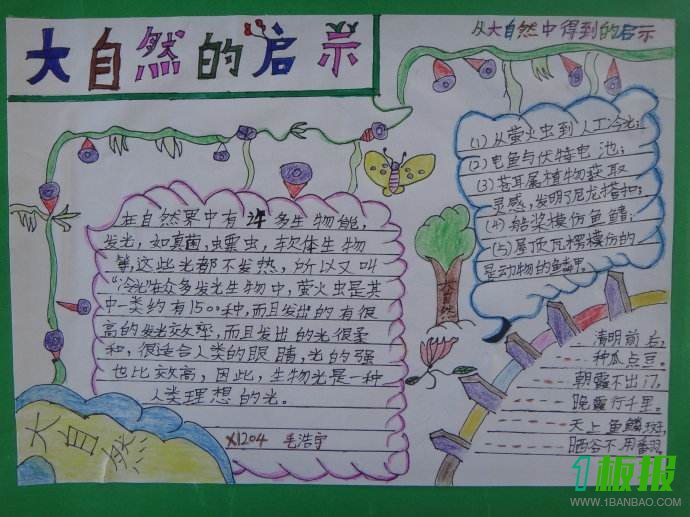 大自然的启示
从大自然中得到的启示
(1)从萤火虫到人工冷光;
(2)电鱼与伏特电池;
(3)苍耳属植物获取
灵感,发明了尼龙搭扣;
(4)船桨模仿鱼鳍;
(5)屋顶瓦楞模仿的
是动物的鳞甲。
在自然界中有许多生物能,
发光,如真菌,蠕虫,软体生物
等,这些光都不发热,所以又叫
"冷光"在众多发光生物中,萤火虫是其
中一类约有1500种,而且发出的有很
高的发光效率,而且发出的光很柔
和,很适合人类的眼睛,光的强
也比较高,因此,生物光是一种
人类理想的光。
X1204 毛浩宇
大自然
大自然
清明前后,
种瓜点豆。
朝霞不出门,
晚霞行千里。
天上鱼鳞斑,
晒谷不用翻
1板报
WWW.1BANBAO.COM